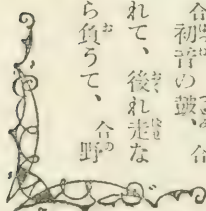 合初音の鼓、合
れて、後れ走な
ら負うて、合野